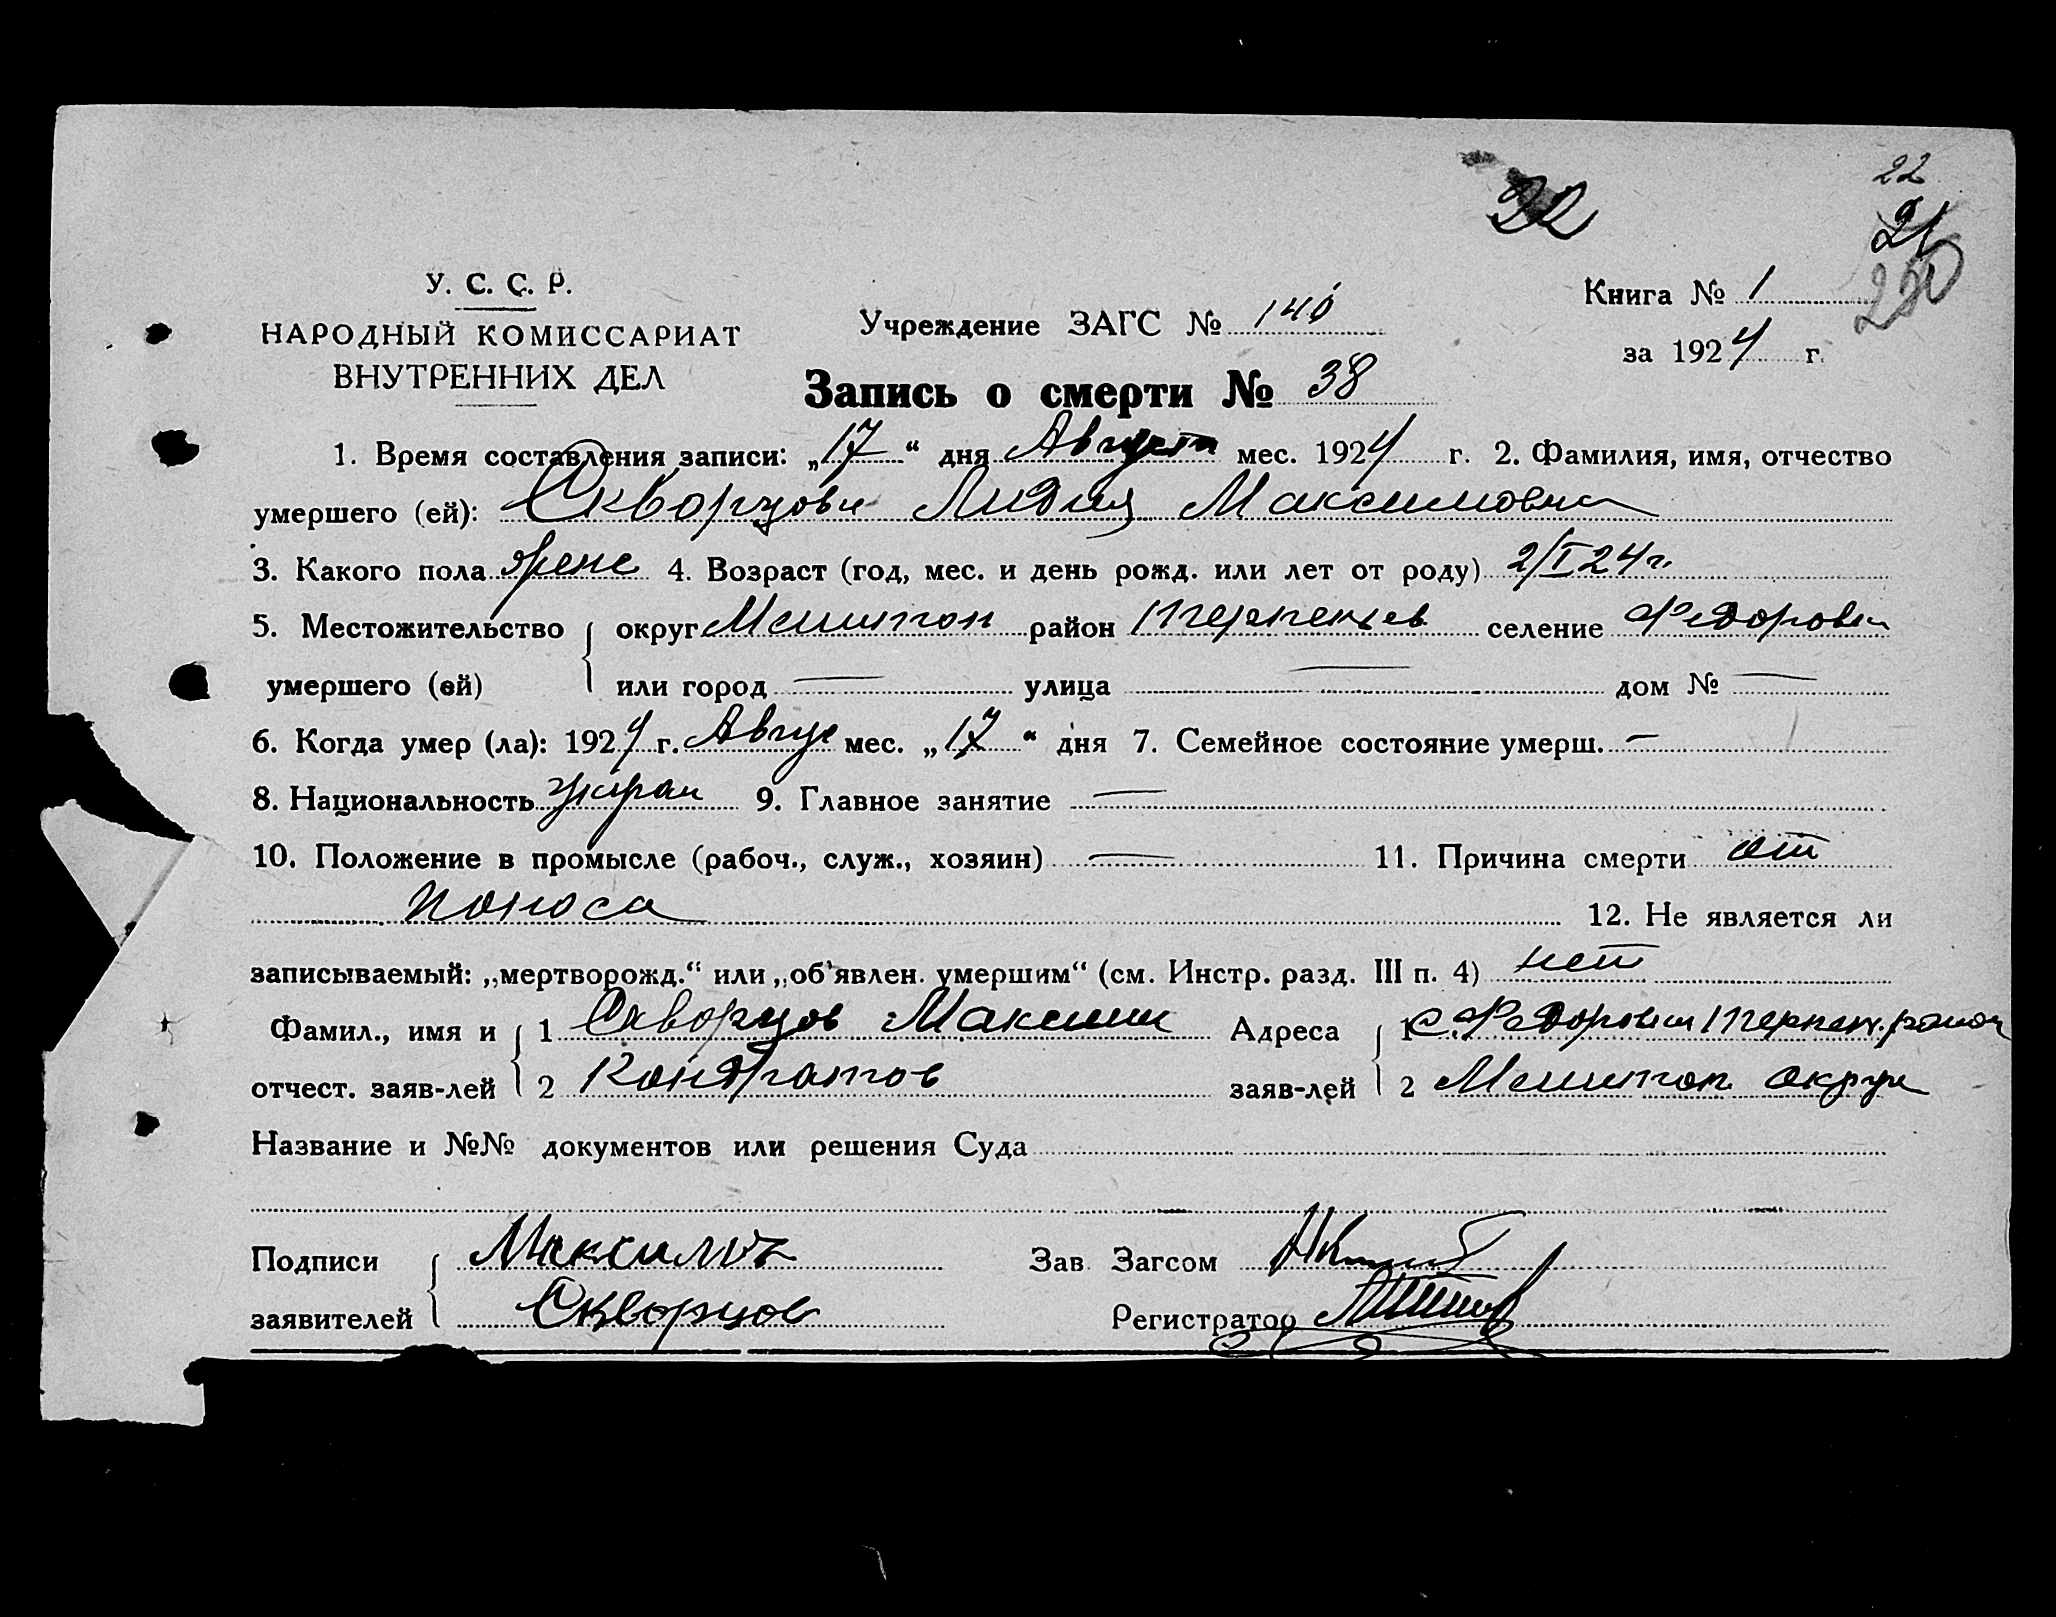 22
22
21
220
У. С. С. Р.
НАРОДНЫЙ КОМИССАРИАТ
ВНУТРЕННИХ ДЕЛ
Учреждение ЗАГС № 140
Книга № 1
за 1924 г.
Запись о смерти № 38
1. Время составления записи: „17“ дня Августа мес. 1924 г. 2. Фамилия, имя, отчество
умершего (ей): Скворцова Лидия Максимовна
3. Какого пола женс 4. Возраст (год, мес. и день рожд. или лет от роду) 2/I 24 г.
5. Местожительство округ Мелитоп район Терпеньев селение Федоровка
умершего (ей) или город — улица — дом № —
6. Когда умер (ла): 1924 г. Авгус мес. „17“ дня 7. Семейное состояние умерш. —
8. Национальность украи 9. Главное занятие —
10. Положение в промысле (рабоч., служ., хозяин) — 11. Причина смерти от
поноса 12. Не является ли
записываемый: „мертворожд.“ или „об'явлен. умершим“ (см. Инстр. разд. III п. 4) нет
Фамил., имя и 1 Скворцов Максим Адреса 1 с. Федоровка Терпен. район
отчест. заяв-лей 2 Кондратов заяв-лей 2 Мелитоп округ
Название и №№ документов или решения Суда
Подписи Максимъ Зав Загсом
заявителей Скворцов Регистратор